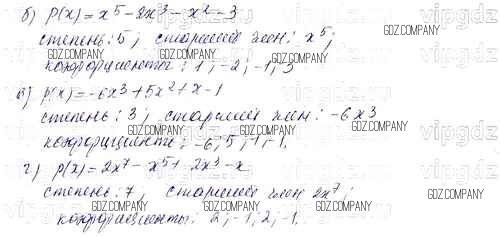 б) P(x) = x⁵ - 2x³ - x² - 3
степень: 5; старший член: x⁵;
коэффициенты: 1; -2; -1; 3
в) P(x) = -6x³ + 5x² + x - 1
степень: 3; старший член: -6x³
коэффициенты: -6; 5; 1; -1.
г) P(x) = 2x⁷ - x⁵ + 2x³ - x
степень: 7; старший член 2x⁷;
коэффициенты: 2; -1; 2; -1.